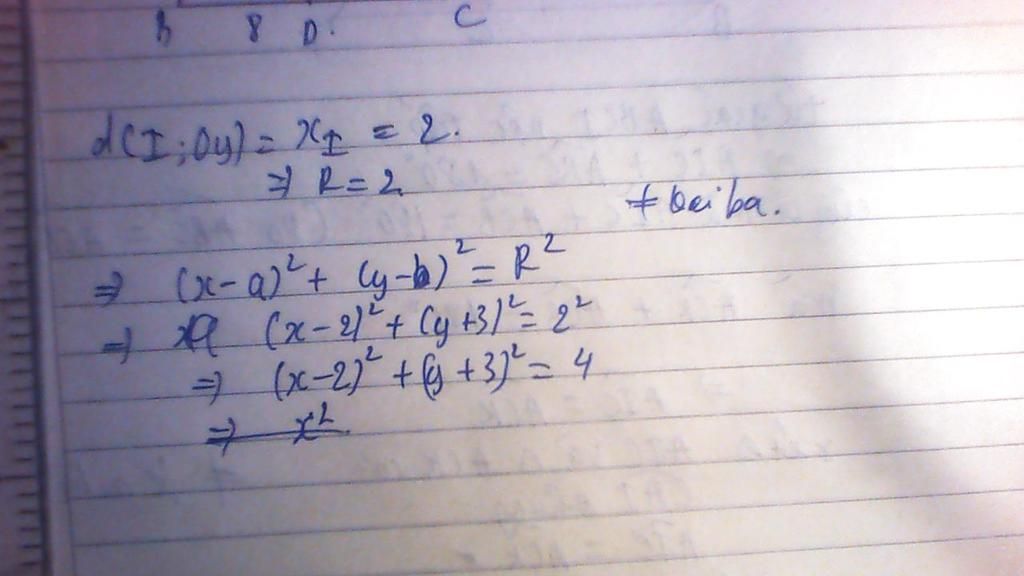 8 D. C
d(I;Oy) = x_I = 2.
⇒ R = 2
⇒ (x-a)² + (y-b)² = R²
⇒ (x-2)² + (y+3)² = 2²
⇒ (x-2)² + (y+3)² = 4
⇒ x²